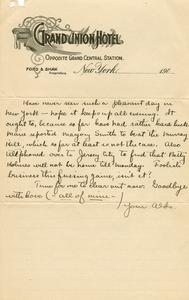 GRAND UNION HOTEL
OPPOSITE GRAND CENTRAL STATION.
FORD & SHAW
Proprietors.
New York, 190
Have never seen such a pleasant day in
New York - hope it keeps up all evening. It
ought to, because so far have had rather hard luck.
Have reported Marjory Smith to beat the Murray
Hill, which so far at least is not the case. Also
telephoned over to Jersey City to find that Betty
Holmes will not be home till Monday. Foolish
business this fussing game, isn't it?
Time for me to clear out now. Goodbye
with love (- all of mine -
Your